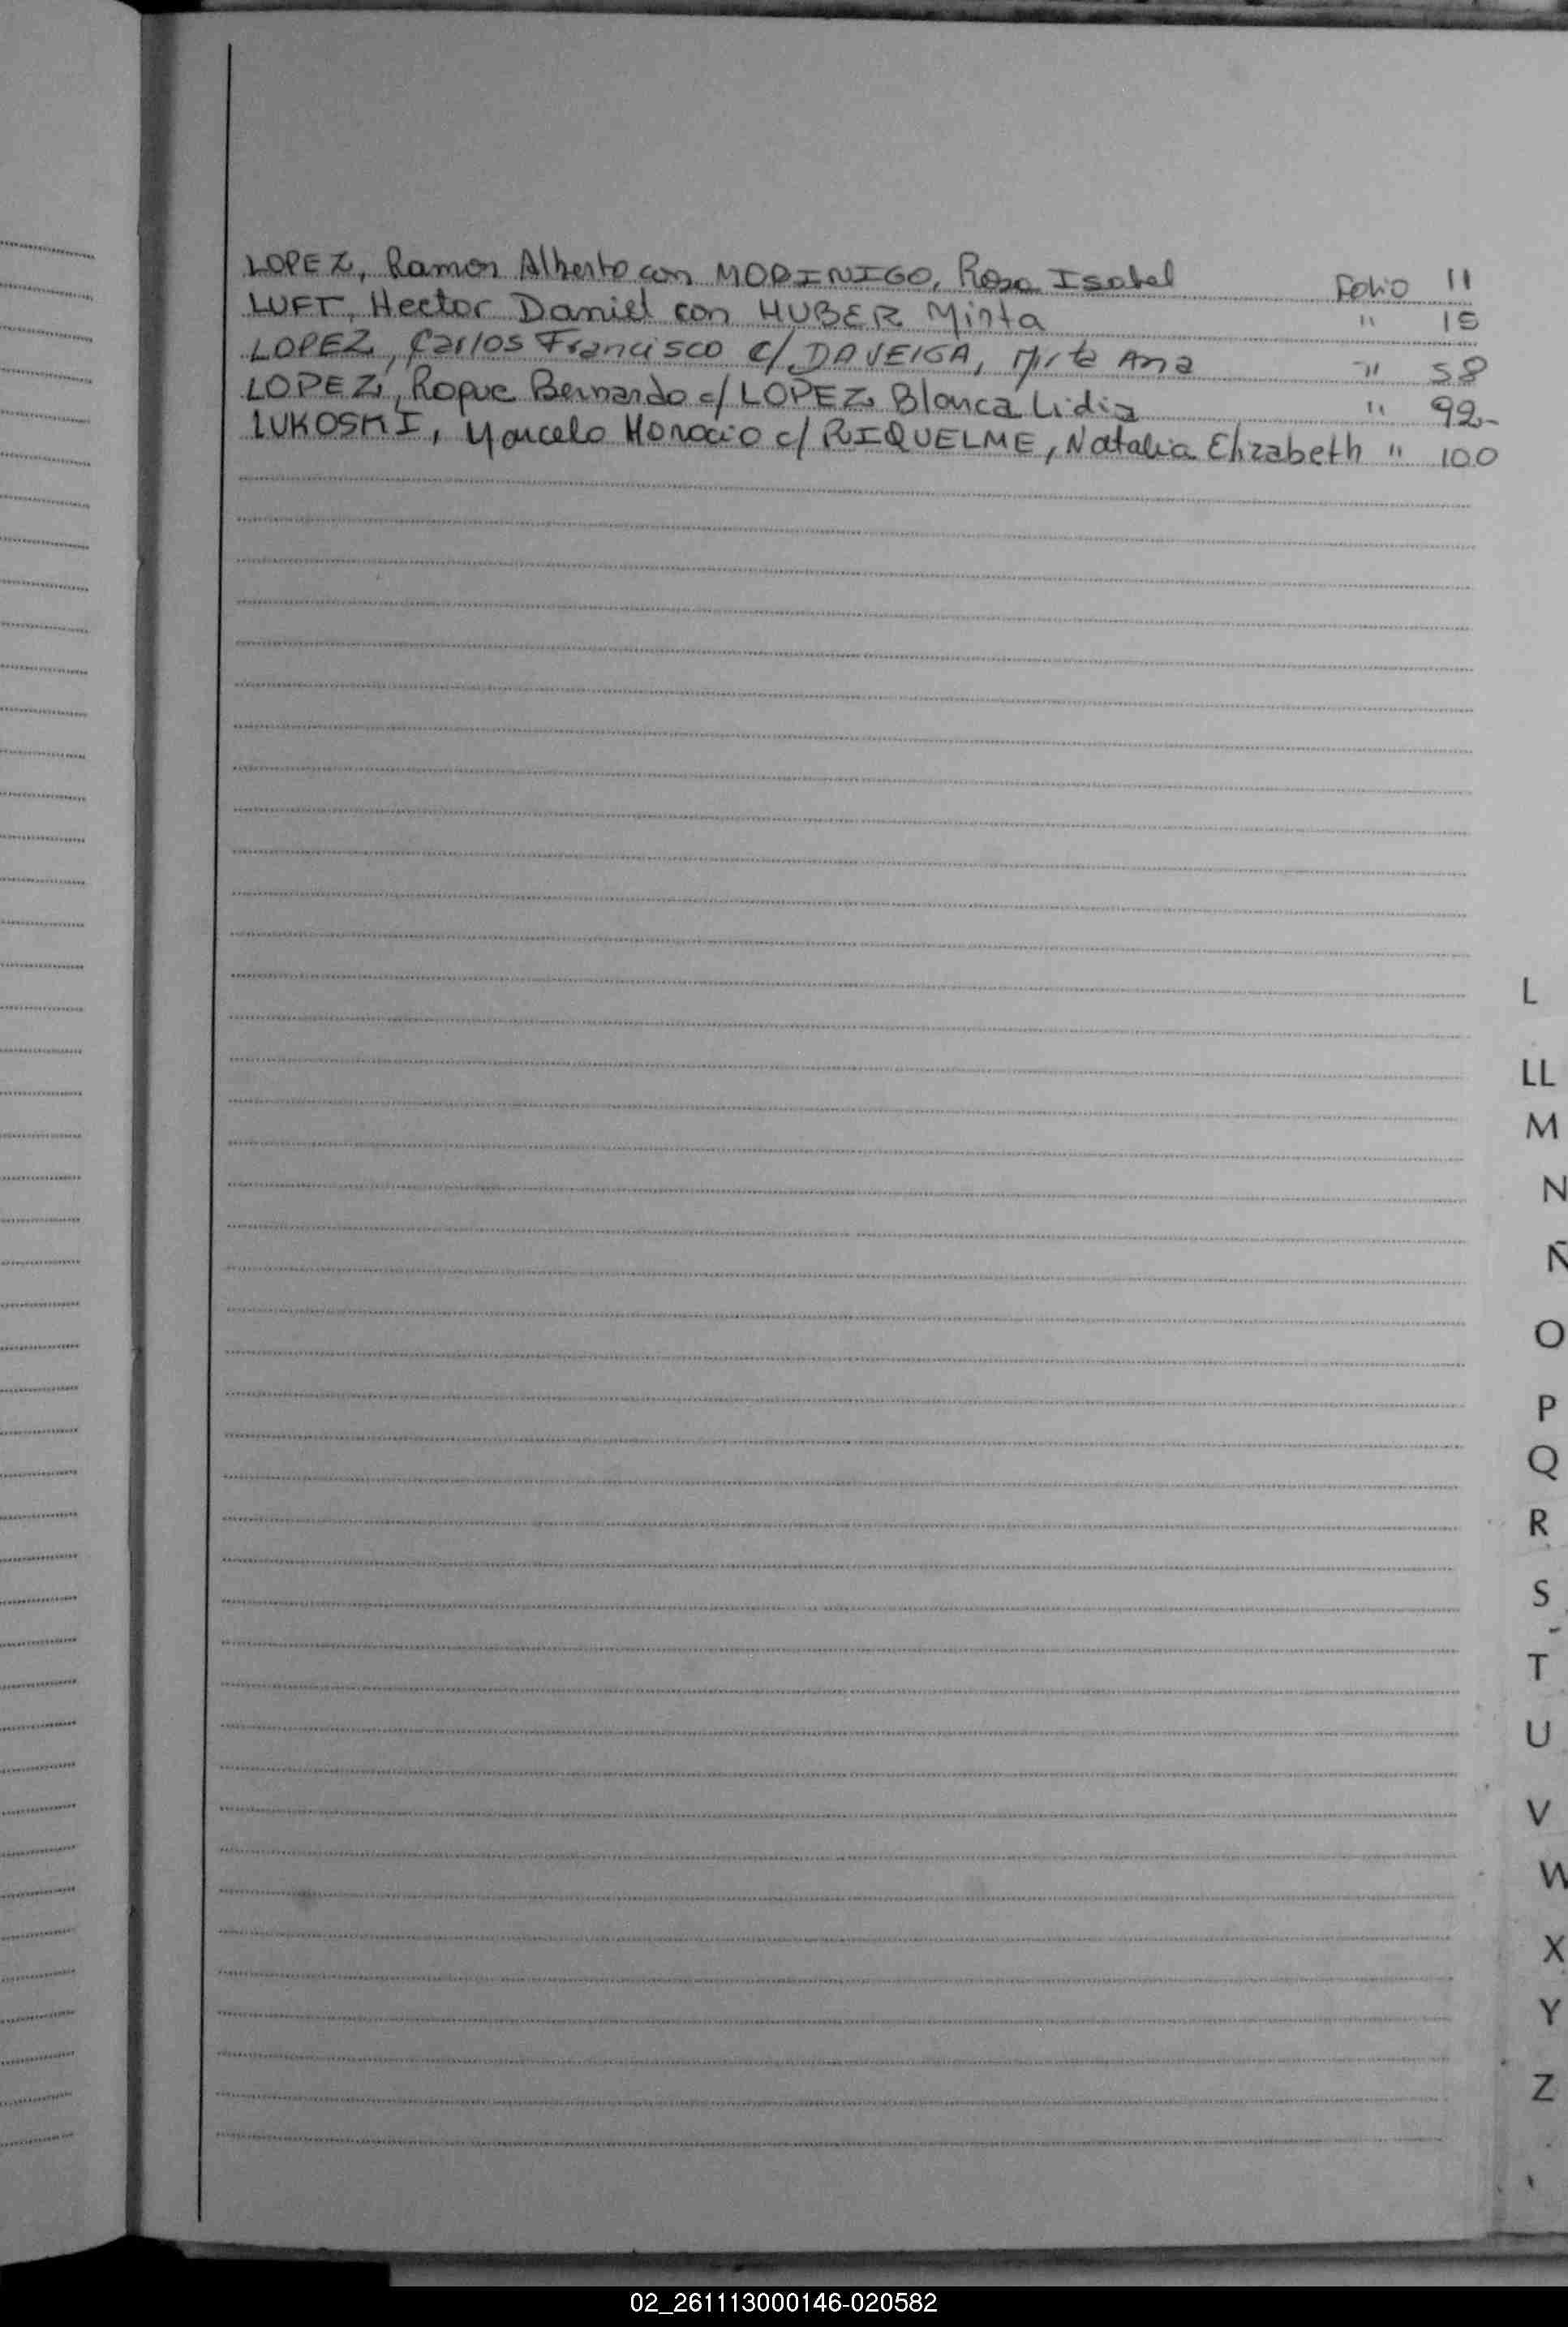 LOPEZ, Ramon Alberto con MORINIGO, Rosa Isabel Folio 11
LUFT, Hector Daniel con HUBER Mirta " 15
LOPEZ, Carlos Francisco c/ DAVEIGA, Mirta Ana " 58
LOPEZ, Roque Bernardo c/ LOPEZ Blanca Lidia " 92-
LUKOSKI, Marcelo Horacio c/ RIQUELME, Natalia Elizabeth " 100
L
LL
M
N
Ñ
O
P
Q
R
S
T
U
V
W
X
Y
Z
02_261113000146-020582